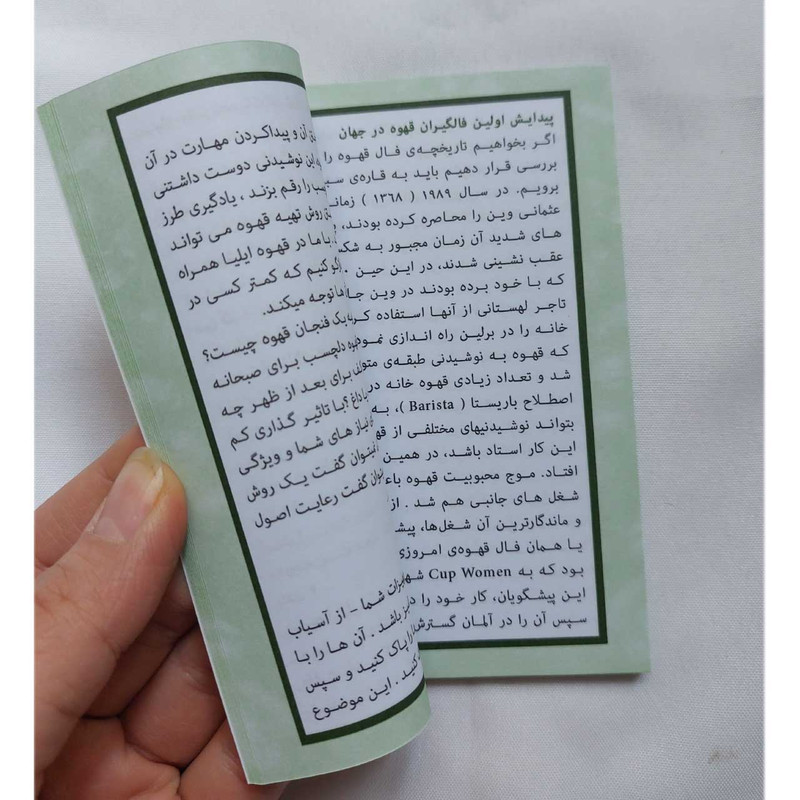 پیدایش اولین فالگیران قهوه در جهان
اگر بخواهیم تاریخچه‌ی فال قهوه را
بررسی قرار دهیم باید به قاره‌ی
برویم. در سال ۱۹۸۹ ( ۱۳۶۸ )
عثمانی وین را محاصره کرده بودند،
های شدید آن زمان مجبور به
عقب نشینی شدند، در این حین
که با خود برده بودند در وین
تاجر لهستانی از آنها استفاده
خانه را در برلین راه اندازی
که قهوه به نوشیدنی طبقه‌ی
شد و تعداد زیادی قهوه خانه در
اصطلاح باریستا ( Barista )، به
بتواند نوشیدنیهای مختلفی از
این کار استاد باشد، در همین
افتاد. موج محبوبیت قهوه
شغل های جانبی هم شد . از
و ماندگارترین آن شغل‌ها،
یا همان فال قهوه‌ی امروزی
بود که به Cup Women
این پیشگویان، کار خود را
سپس آن را در آلمان
آن و پیداکردن مهارت در آن
این نوشیدنی دوست داشتنی
را رقم بزند ، یادگیری طرز
روش تهیه قهوه می تواند
با ما در قهوه ایلیا همراه
کنیم که کمتر کسی در
توجه میکند.
یک فنجان قهوه چیست؟
دلچسب برای صبحانه
برای بعد از ظهر چه
داغ ؟با تاثیر گذاری کم
نیاز های شما و ویژگی
گفت یک روش
گفت رعایت اصول
شما - از آسیاب
باشد . آن ها را با
را پاک کنید و سپس
کنید . این موضوع